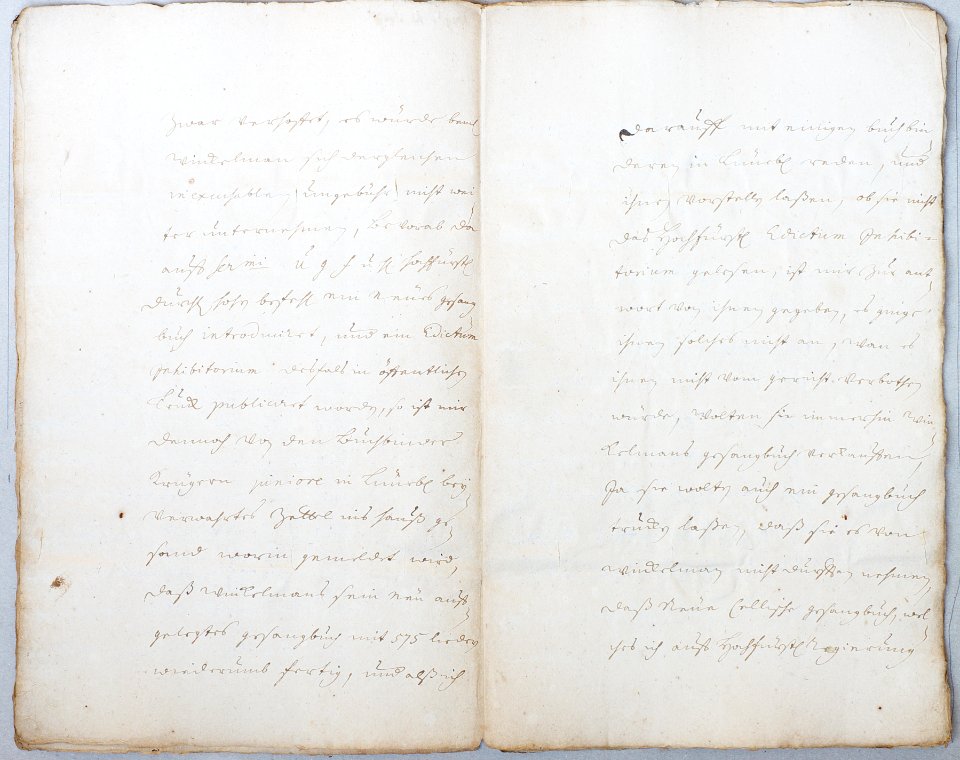 zwar verhoffet, es würde bemel
Winckelman sich dergleichen
inexcusablen ungebühr nicht wei
ter unternehmen, bevorab da
auff sermi u g f u h hochfürstl
Durchl hohen befehl ein neües gesang
buch introduciret, und ein Edictum
Inhibitorium desfals in öffentlichen
Truck publiciret worden, so ist mir
dennoch von den Buchbinder
Krügern juniore in Lüneb. bey
verwahrtes Zettel ins hauß ge
sand worin gemeldet wird,
daß Winckelmans sein neu auff
gelegtes gesangbuch mit 575 lieder
wiederumb fertig, und alß ich
darauff mit einigen buchbin
deren in Lüneb. reden, und
ihnen vorstellen laßen, ob sie nicht
das Hochfürstl Edictum Inhibi-
torium gelesen, ist mir zur ant
wort von ihnen gegeben, es ginge
ihnen solches nicht an, wan es
ihnen nicht vom gericht verbothen
würde, wolten sie immerhin Win
kelmans gesangbuch verkauffen,
Ja sie wolten auch ein gesangbuch
trucken laßen, daß sie es von
Winckelman nicht dürfften nehmen,
daß Neue Cellische gesangbuch, wel
ches ich auff Hochfürstl Regierung